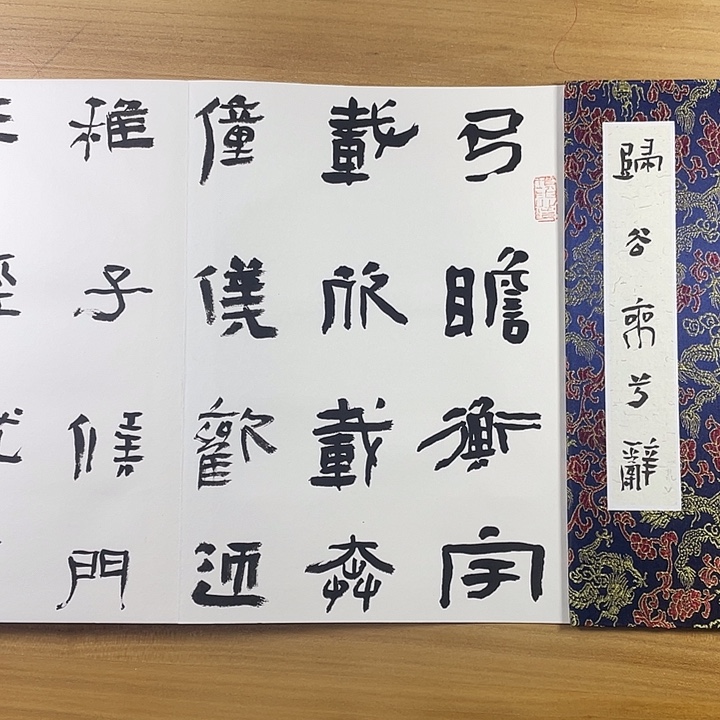 歸去來兮辭
乃瞻衡宇
載欣載奔
僮僕歡迎
稚子候門